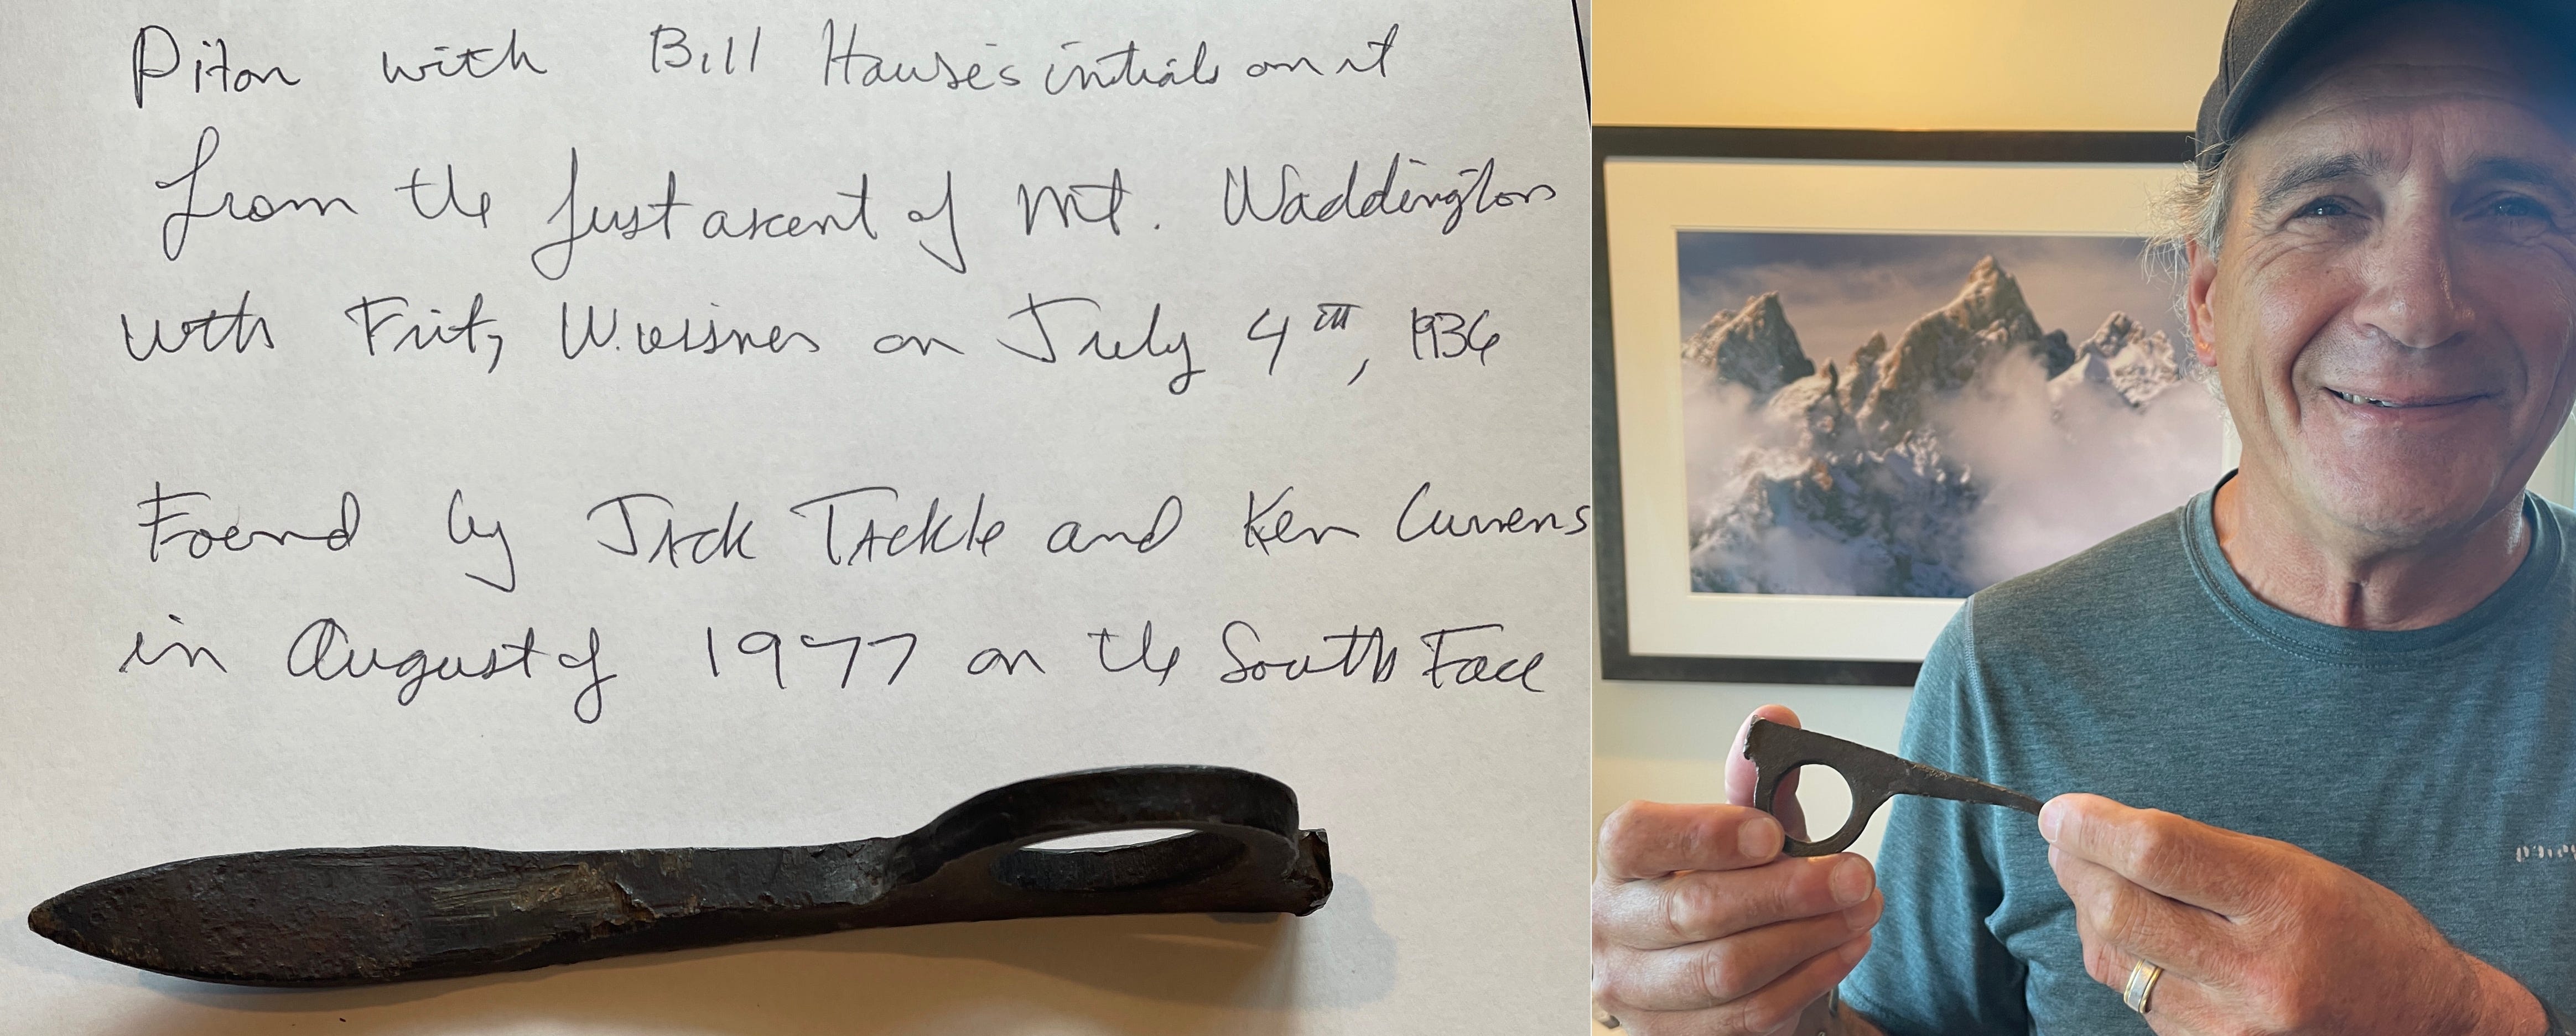 Piton with Bill House's initials on it
from the first ascent of Mt. Waddington
with Fritz Wiessner on July 4th, 1936
Found by Jack Tackle and Ken Currens
in August of 1977 on the South Face